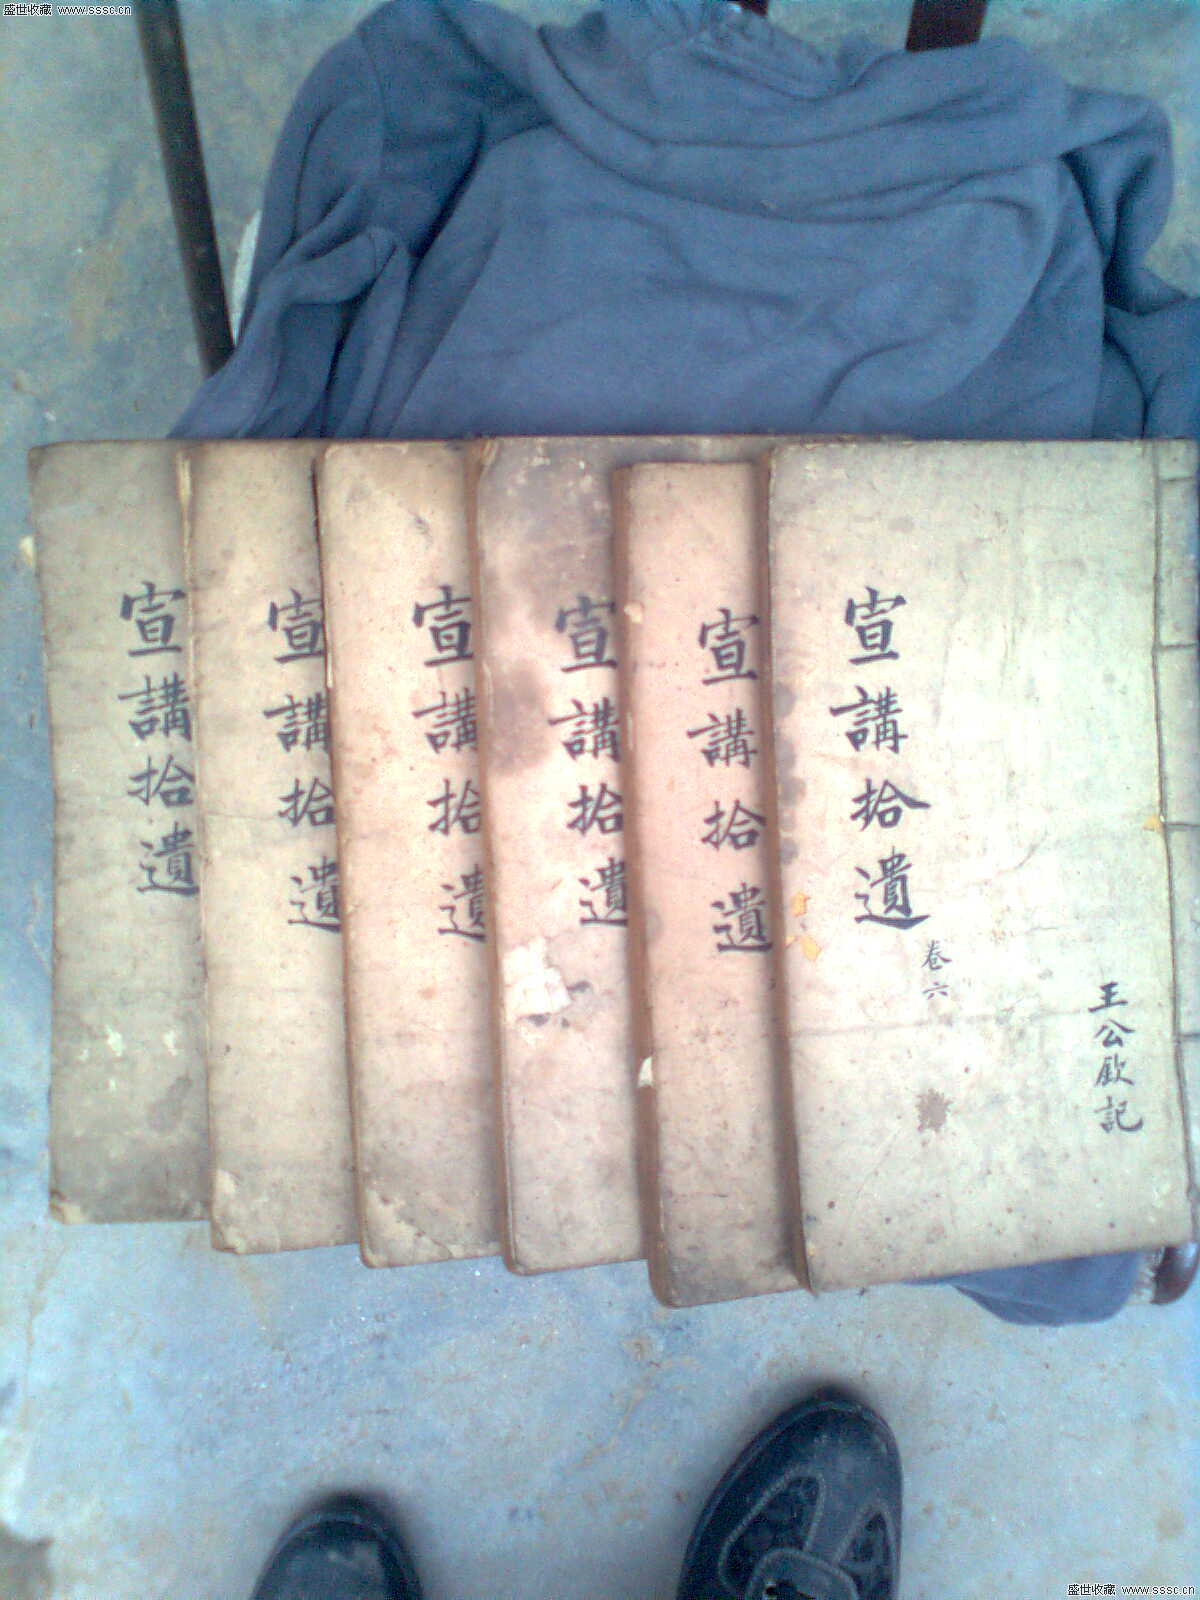 盛世收藏 www.sssc.cn
宣講拾遺
宣講拾遺
宣講拾遺
宣講拾遺
宣講拾遺
宣講拾遺
卷六
王公欽記
盛世收藏 www.sssc.cn